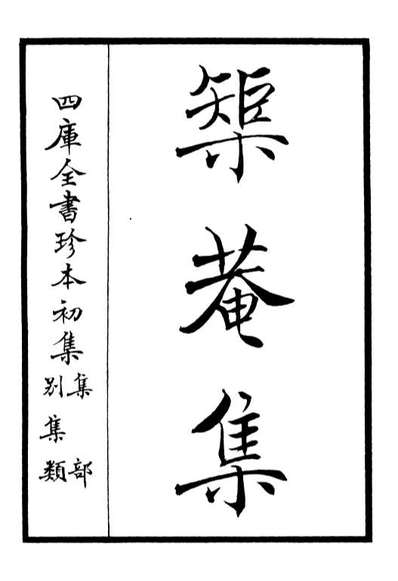 榘菴集
四庫全書珍本初集 集部
別集類